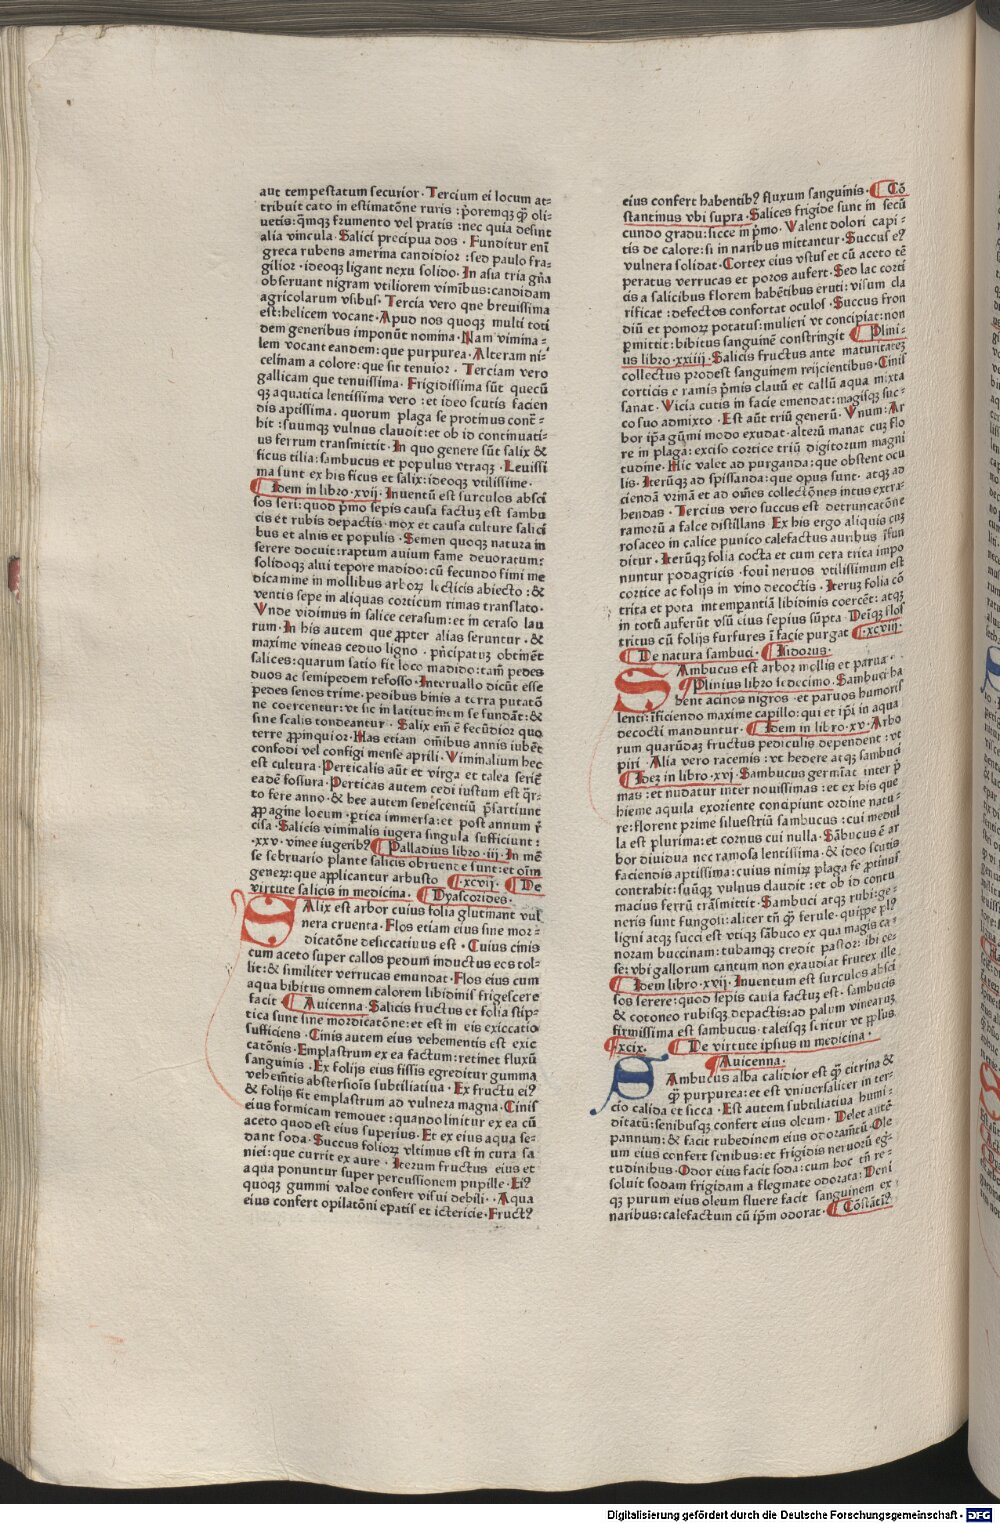 aut tempestatum securior · Tercium ei locum at⸗
tribuit cato in estimatōne ruris : p̄oremqꝫ qꝫ oli⸗
uetis: qm̄qꝫ frumento vel pratis : nec quia desint
alia vincula · Salici precipua dos · Funditur enī
greca rubens amerina candidior : sed paulo fra⸗
gilior · ideoqꝫ ligant nexu solido · In asia tria gn̄a
obseruant nigram vtiliorem vimībus: candidam
agricolarum vsibus · Tercia vero qne breuissima
est: helicem vocant · Apud nos quoqꝫ multi toti
dem generibus imponūt nomina · Nam vimina⸗
lem vocant eandem: que purpurea · Alteram ni⸗
celinam a colore: que sit tenuior · Terciam vero
gallicam que tenuissima · Frigidissima sūt quecū
qꝫ aquatica lentissima vero : et ideo scutis facien
dis aptissima · quorum plaga se protinus conē⸗
hit : suumqꝫ vulnus claudit: et ob id continuati⸗
us ferrum transmittit · In quo genere sūt salix &
ficus tilia: sambucus et populus vtraqꝫ · Leuissi
ma sunt ex his ficus et salix: ideoqꝫ vtilissime ·
Idem in libro · xvij · Inuentū est surculos absci
sos seri: quod p̄mo sepis causa factuꝫ est sambu
cis et rubis depactis · mox et causa culture salici
bus et alnis et populis · Semen quoqꝫ natura in
serere docuit: raptum auium fame deuoratum:
solidoqꝫ alui tepore madido: cū fecundo fimi me
dicamine in mollibus arborꝫ lecticis abiecto : &
ventis sepe in aliquas corticum rimas translato ·
Vnde vidimus in salice cerasum: et in ceraso lau
rum · In his autem que ꝓpter alias seruntur · &
maxime vineas ceduo ligno · p̄ncipatuꝫ obtinēt
salices: quarum satio fit loco madido: tam̄ pedes
duos ac semipedem refosso · Interuallo dicūt esse
pedes senos trime · pedibus binis a terra putatō
ne coercentur: vt sic in latitudinem se fundāt: &
sine scalis tondeantur · Salix em̄ ē fecūdior quo
terre ꝓpinquior · Has etiam omībus annis iubēt
confodi vel configi mense aprili · Vimmalium hec
est cultura · Perticalis aūt et virga et talea seriē
eadē fossura · Perticas autem cedi iustum est qr̄⸗
to fere anno · & hee autem senescentiū p̄sartiunt
ꝓpagine locum · ꝑtica immersa: et post annum r̄
cisa · Salicis viminalis iugera singula sufficiunt :
· xxv · vinee iugerib? Palladius libro · iij · In mē
se februario plante salicis obruende sunt: et oīm
generꝫ: que applicantur arbusto · xcvij · De
virtute salicis in medicina · Dyascorides ·
SAlix est arbor cuius folia glutinant vul
nera cruenta · Flos etiam eius sine mor⸗
dicatōne desiccatiuus est · Cuius cinis
cum aceto super callos pedum inductus eos tol⸗
lit: & similiter verrucas emundat · Flos eius cum
aqua bibitus omnem calorem libidinis frigescere
facit Auicenna · Salicis fructus et folia stip⸗
tica sunt sine mordicatōne: et est in eis exiccatio
sufficiens · Cinis autem eius vehementis est exic
catōnis · Emplastrum ex ea factum: retinet fluxū
sanguinis · Ex folijs eius fissis egreditur gumma
vehemētis abstersiōis subtiliatiua · Ex fructu ei?
& folijs fit emplastrum ad vulnera magna · Cinis
eius formicam remouet : quando linitur ex ea cū
aceto quod est eius superius · Et ex eius aqua se⸗
dant soda · Succus foliorꝫ vltimus est in cura sa
niei: que currit ex aure · Iterum fructus eius et
aqua ponuntur super percussionem pupille · Ei?
quoqꝫ gummi valde confert visui debili · Aqua
eius confert opilatōni epatis et ictericie · Fruct?
eius confert habentib? fluxum sanguinis · Cō
stantinus vbi supra · Salices frigide sunt in secū
cundo gradu: sicce in p̄mo · Valent dolori capi⸗
tis de calore: si in naribus mittantur · Succus e?
vulnera solidat · Cortex eius vstus et cū aceto tē
peratus verrucas et poros aufert · Sed lac corti
cis a salicibus florem habētibus eruti: visum cla
rificat : defectos confortat oculos · Succus fron
diū et pomorꝫ potatus: mulieri vt concipiat: non
ꝑmittit: bibitus sanguinē constringit Plini⸗
us libro · xxiiij · Salicis fructus ante maturitateꝫ
collectus prodest sanguinem reijcientibus · Cinis
corticis e ramis p̄mis clauū et callū aqua mixta
sanat · Vicia cutis in facie emendat: magisqꝫ suc⸗
co suo admixto · Est aūt triū generū · Vnum: Ar
bor ip̄a gūmi modo exudat · alterū manat cuꝫ flo
re in plaga: exciso cortice triū digitorum magni
tudine · Hic valet ad purganda: que obstent ocu
lis · Iterūqꝫ ad spissanda: que opus sunt · atqꝫ ad
ciendā vrinā et ad om̄es collectōnes intus extra⸗
hendas · Tercius vero succus est detruncacōne
ramorū a falce distillans Ex his ergo aliquis cuꝫ
rosaceo in calice punico calefactus auribus īfun
ditur · Iterūqꝫ folia cocta et cum cera trita impo
nuntur podagricis · foui neruos vtilissimum est
cortice ac folijs in vino decoctis · Iteruꝫ folia cō
trita et pota intempantiā libidinis coercēt: atqꝫ
in totū auferūt vsū eius sepius sūpta · Deiqꝫ flos
tritus cū folijs furfures ī facie purgat · xcviij ·
De natura sambuci · Isidorus ·
SAmbucus est arbor mollis et parua ·
Plinius libro sedecimo · Sambuci ha
bent acinos nigros · et paruos humoris
lenti: īficiendo maxime capillo: qui et ip̄i in aqua
decocti manduntur · Idem in libro · xv · Arbo
rum quarūdaꝫ fructus pediculis dependent : vt
piri · Alia vero racemis : vt hedere atqꝫ sambuci
Ideꝫ in libro · xvj · Sambucus germīat inter p̄
mas : et nudatur inter nouissimas : et ex his que
hieme aquila exoriente concipiunt ordine natu⸗
re: florent prime siluestriū sambucus : cui medul
la est plurima: et cornus cui nulla · Sābucus ē ar
bor diuidua nec ramosa lentissima · & ideo scutis
faciendis aptissima: cuius nimiꝫ plaga se ꝓtinus
contrahit: suūqꝫ vulnus claudit : et ob id contu
macius ferrū trāsmittit · Sambuci atqꝫ rubi: ge⸗
neris sunt fungosi: aliter tn̄ qꝫ ferule · quippe pl?
ligni atqꝫ succi est vtiqꝫ sābuco ex qua magis ca⸗
noram buccinam: tubamqꝫ credit pastor: ibi ce⸗
se: vbi gallorum cantum non exaudiat frutex ille
Idem libro · xvij · Inuentum est surculos absci
sos serere: quod sepis causa factuꝫ est · sambucis
& cotoneo rubisqꝫ depactis: ad palum vinearuꝫ
firmissima est sambucus · taleisqꝫ seritur vt ꝓlus ·
xcix · De virtute ipsius in medicina ·
Auicenna ·
SAmbucus alba calidior est qꝫ citrina &
qꝫ purpurea: et est vniuersaliter in ter⸗
cio calida et sicca · Est autem subtiliatiua humi⸗
ditatū: senibusqꝫ confert eius oleum · Delet autē
pannum: & facit rubedinem eius odoramētū · Ole
um eius confert senibus: et frigidis neruorū egri⸗
tudinibus · Odor eius facit soda: cum hoc tn̄ re⸗
soluit sodam frigidam a flegmate odorata: Deni
qꝫ purum eius oleum fluere facit sanguinem ex
naribus: calefactum cū ip̄m odorat · Cōstāti?
Digitalisierung gefördert durch die Deutsche Forschungsgemeinschaft - DFG